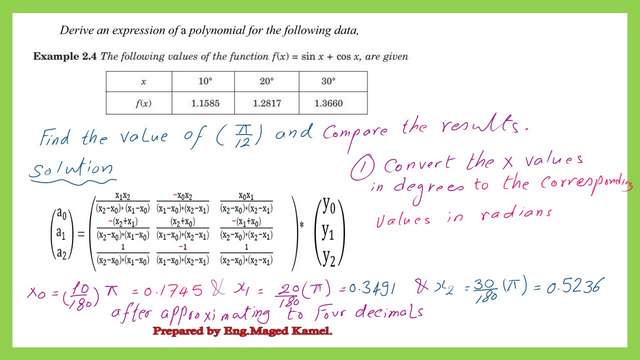 Derive an expression of a polynomial for the following data,
Example 2.4 The following values of the function f(x) = sin x + cos x, are given
x 10° 20° 30°
f(x) 1.1585 1.2817 1.3660
Find the value of (π/12) and Compare the results.
Solution
① Convert the x values
in degrees to the Corresponding
Values in radians
(a₀ a₁ a₂) = (x₁x₂/(x₂−x₀)∗(x₁−x₀) −x₀x₂/(x₁−x₀)∗(x₂−x₁) x₀x₁/(x₂−x₀)∗(x₂−x₁)
−(x₂+x₁)/(x₂−x₀)∗(x₁−x₀) (x₂+x₀)/(x₁−x₀)∗(x₂−x₁) −(x₁+x₀)/(x₂−x₀)∗(x₂−x₁)
1/(x₂−x₀)∗(x₁−x₀) −1/(x₁−x₀)∗(x₂−x₁) 1/(x₂−x₀)∗(x₂−x₁)) * (y₀ y₁ y₂)
x₀ = (10/180) π = 0.1745 & x₁ = 20/180 (π) = 0.3491 & x₂ = 30/180 (π) = 0.5236
after approximating to Four decimals
Prepared by Eng.Maged Kamel.